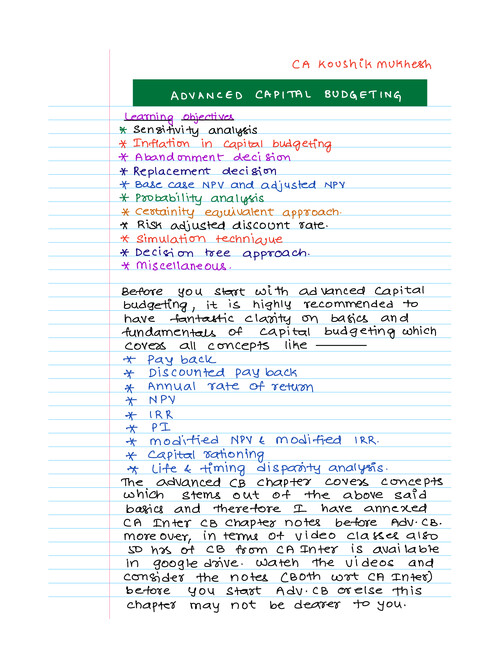 CA Koushik Mukhesh
ADVANCED CAPITAL BUDGETING
Learning objectives
* Sensitivity analysis
* Inflation in capital budgeting
* Abandonment decision
* Replacement decision
* Base case NPV and adjusted NPV
* Probability analysis
* Certainity equivalent approach.
* Risk adjusted discount rate.
* Simulation technique
* Decision tree approach.
* Miscellaneous.
Before you start with advanced capital
budgeting, it is highly recommended to
have fantastic clarity on basics and
fundamentals of capital budgeting which
covers all concepts like ———
* Pay back
* Discounted pay back
* Annual rate of return
* NPV
* IRR
* PI
* modified NPV & modified IRR.
* Capital rationing
* Life & timing disparity analysis.
The advanced CB chapter covers concepts
which stems out of the above said
basics and therefore I have annexed
CA Inter CB chapter notes before Adv. CB.
moreover, in terms of video classes also
50 hrs of CB from CA Inter is available
in google drive. watch the videos and
consider the notes (Both wrt CA Inter)
before you start Adv. CB or else this
chapter may not be dearer to you.